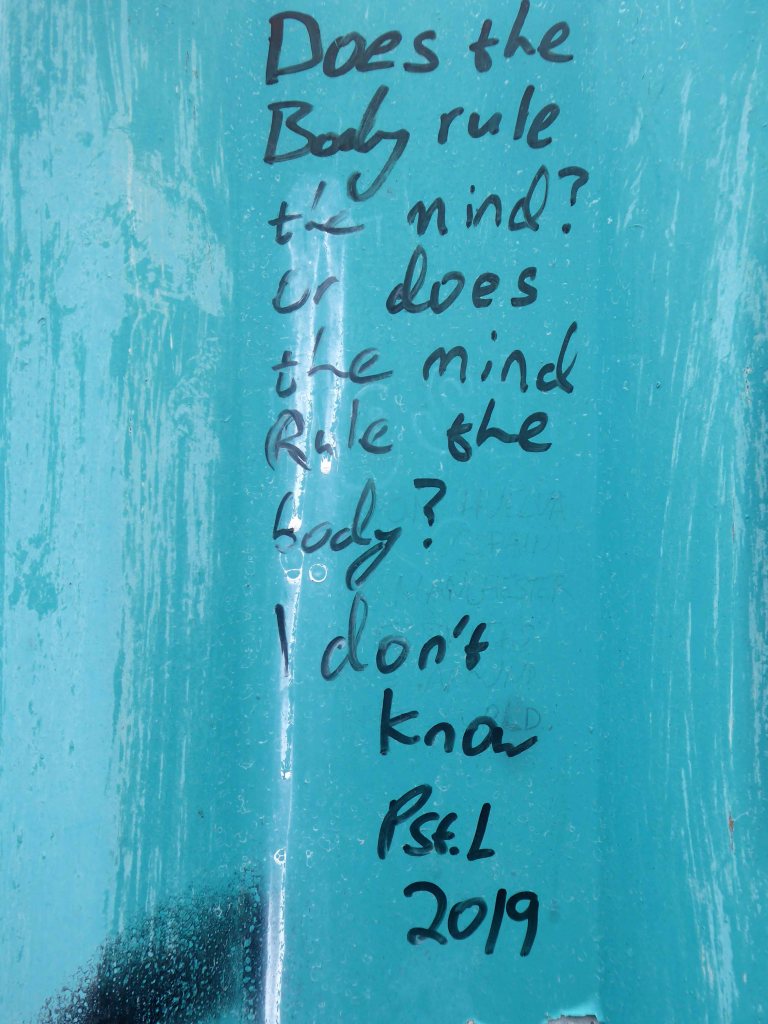 Does the
Body rule
the mind?
or does
the mind
Rule the
body?
I don't
know
Pst.L
2019